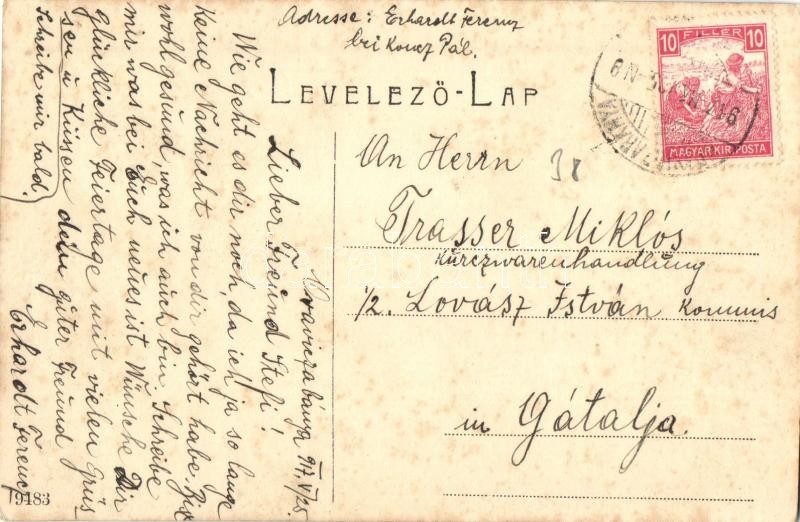 Adresse: Erhardt Ferenz
bei Koncz Pál.
LEVELEZŐ-LAP
10 FILLÉR 10
MAGYAR KIR. POSTA
An Herrn
Trasser Miklós
Kurczwarenhandlung
1/2. Lovász István Kommis
in Gátalja.
Oraviczabánya 917 V/25
Lieber Freund Stefi!
Wie geht es dir noch, da ich ja so lange
keine Nachricht von dir gehört habe. Bin
wohl gesund, was ich auch bin Schreibe
mir was bei Euch neues ist Wünsche Dir
glückliche Feiertage mit vielen Grüs
sen u Küssen dein guter Freund
Erhardt Ferenc
Schreibe mir bald.
9183